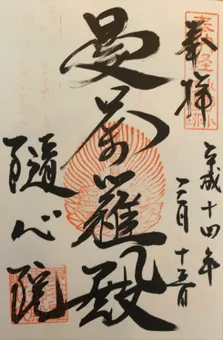 奉拝
平成十四年
二月十三日
曼荼羅殿
隨心院